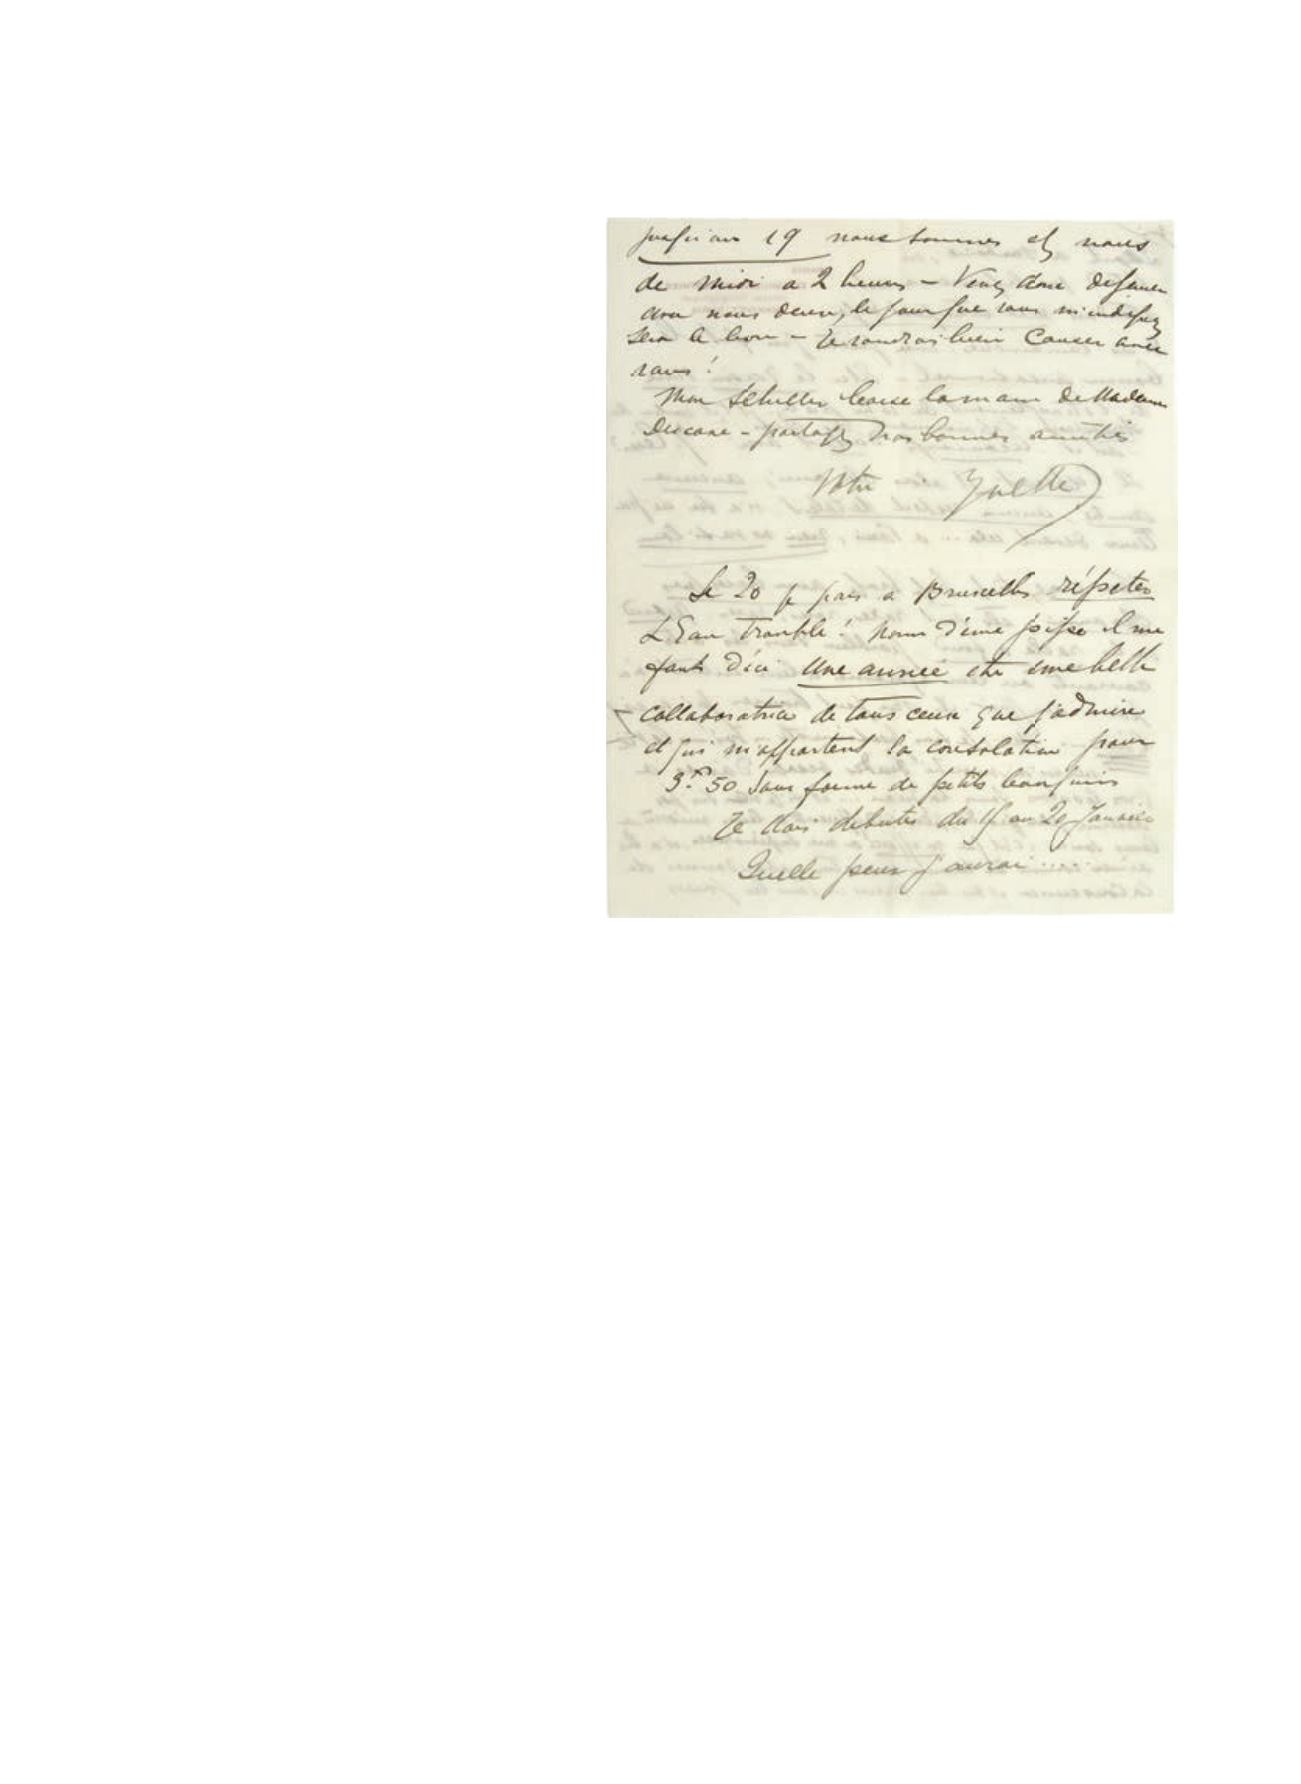 jusqu'au 19 nous sommes chez nous
de midi a 2 heures – Venez donc dejeuner
avec nous deux, le jour que vous m'indiquez
sera le bon – Je voudrais bien causer avec
vous !
Mon Schiller baise la main de Madame
Descave – partagez nos bonnes amitiés
Votre Yvette
Le 20 je pars a Bruxelles répéter
L'Eau Trouble ! Nom d'une pipe il me
faut d'ici une année etre une belle
collaboratrice de tous ceux que j'admire
et qui m'apportent la consolation pour
3f 50 sous forme de petits bouquins
Je dois debuter du 15 au 20 Janvier
Quelle peur j'aurai ...